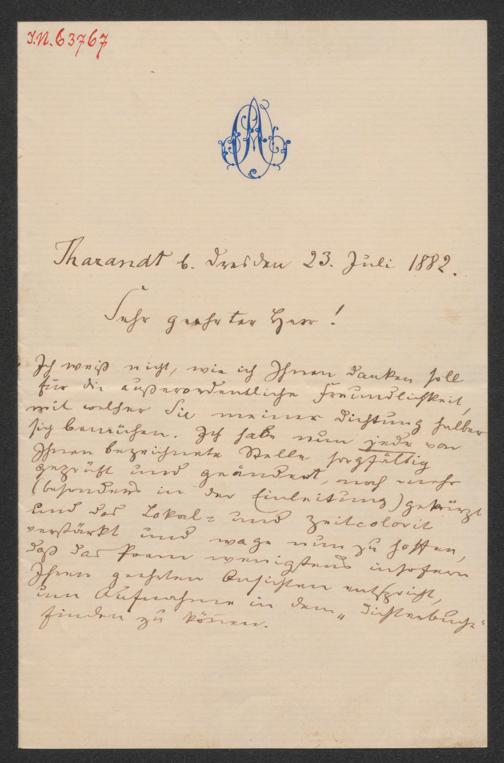 I.N. 63767
Tharandt b. Dresden 23. Juli 1882.
Sehr geehrter Herr!
Ich weiß nicht, wie ich Ihnen danken soll
für die außerordentliche Freundlichkeit,
mit welcher Sie meiner Dichtung halber
sich bemühen. Ich habe nun jede von
Ihnen bezeichnete Stelle sorgfältig
geprüft und geändert, noch mehr
(besonders in der Einleitung) gekürzt
und das Lokal- und Zeitcolorit
verstärkt und wage nun zu hoffen,
daß das Poem wenigstens insofern
Ihren geehrten Ansichten entspricht,
um Aufnahme in dem „Dichterbuche"
finden zu können.